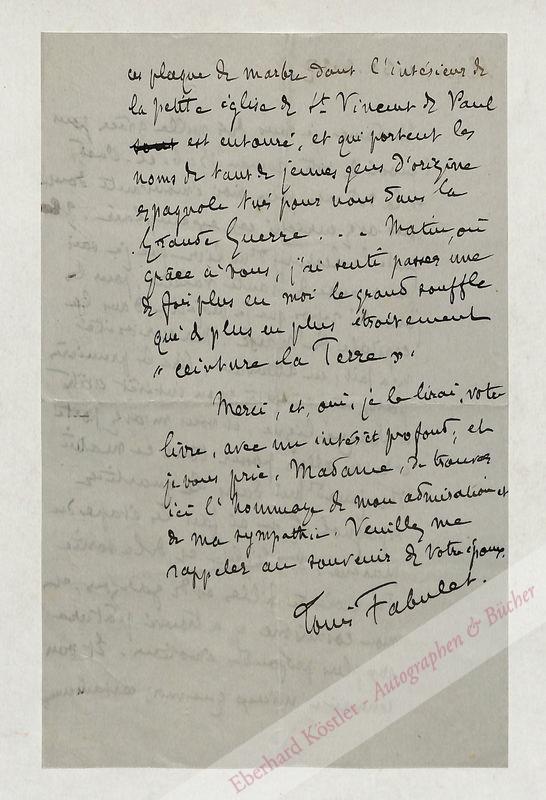 ces plaque de marbre dont l'intérieur de
la petite église de St Vincent de Paul
sont est entouré, et qui portent les
noms de tant de jeunes gens d'origine
espagnole tués pour nous dans la
Grande Guerre . . . Matin, où
grâce à vous, j'ai senti passer une
de fois plus en moi le grand souffle
qui de plus en plus étroitement
" ceinture la Terre ".
Merci, et, oui, je le lirai, votre
livre, avec un intérêt profond, et
je vous prie, Madame, de trouver
ici l'hommage de mon admiration et
de ma sympathie. Veuillez me
rappeler au souvenir de votre époux.
Louis Fabulet.
Eberhard Köstler - Autographen & Bücher